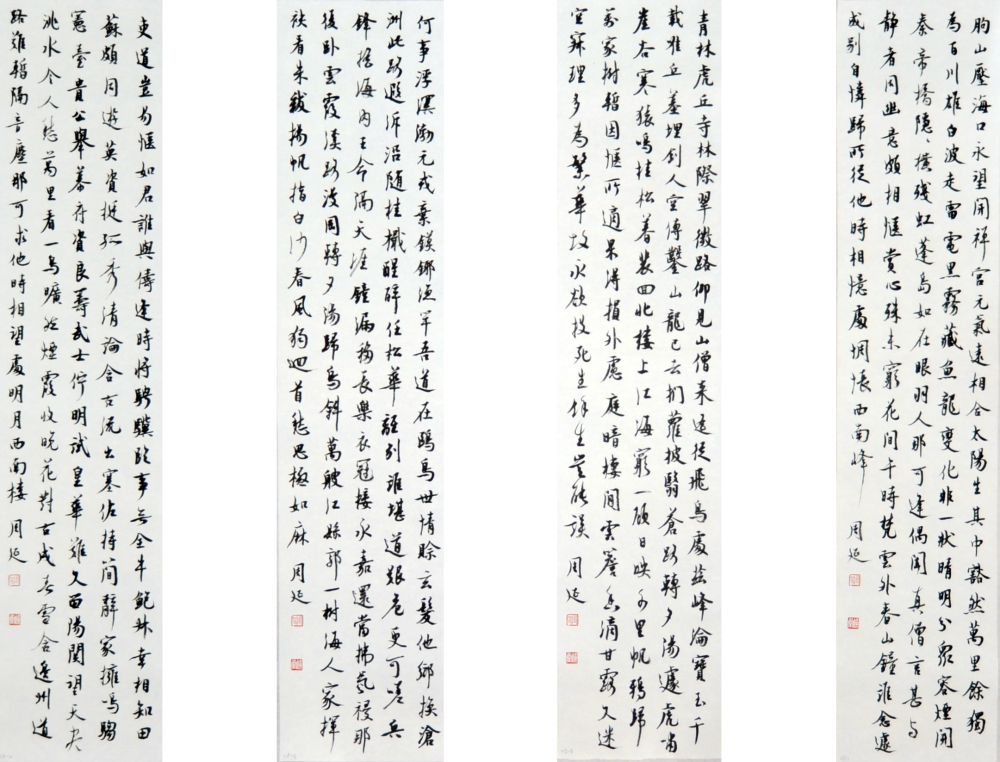 朐山壓海口永望開禪宮元氣遠相合太陽生其中豁然萬里餘獨
為百川雄白波走雷電黑霧藏魚龍變化非一狀晴明分眾容煙開
秦帝橋隱〻橫殘虹蓬島如在眼羽人那可逢偶聞真僧言甚与
靜者同幽意頗相愜賞心殊未窮花間午時梵雲外春山鐘誰念遽
成別自憐歸所從他時相憶處惆悵西南峰 周延
青林虎丘寺林際翠微路仰見山僧來遙從飛鳥處茲峰淪寶玉千
載唯丘墓埋劍人空傳鑿山龍已去捫蘿披翳蒼路轉夕陽遽虎嘯
崖谷寒猿鳴桂松暮裴回北樓上江海窮一顧日映千里帆鴉歸
萬家樹暫因愜所適果得損外慮庭暗棲閒雲簷香滴甘露久迷
空寂理多為繁華故永欲投死生餘生豈能誤 周延
何事浮溟渤元戎棄鏌鋣漁竿吾道在鷗鳥世情賒玄髮他鄉換滄
洲此路遐泝沿隨桂檝醒醉任松華離別誰堪道艱危更可嗟兵
鋒搖海內王命隔天涯鐘漏移長樂衣冠接永嘉還當拂氛祲那
復臥雲霞溪路漫岡轉夕陽歸鳥斜萬艘江縣郭一樹海人家揮
袂看朱紱揚帆指白沙春風獨迴首愁思極如麻 周延
吏道豈易愜如君誰與儔逢時將騁驥臨事無全牛鮑叔幸相知田
蘇頗同遊英資挺孤秀清論含古流出塞佐持簡辭家擁鳴騶
憲臺貴公舉幕府資良籌武士佇明試皇華難久留陽關望天盡
洮水令人愁萬里看一鳥曠然煙霞收晚花對古戍春雪含邊州道
路難暫隔音塵那可求他時相望處明月西南樓 周延